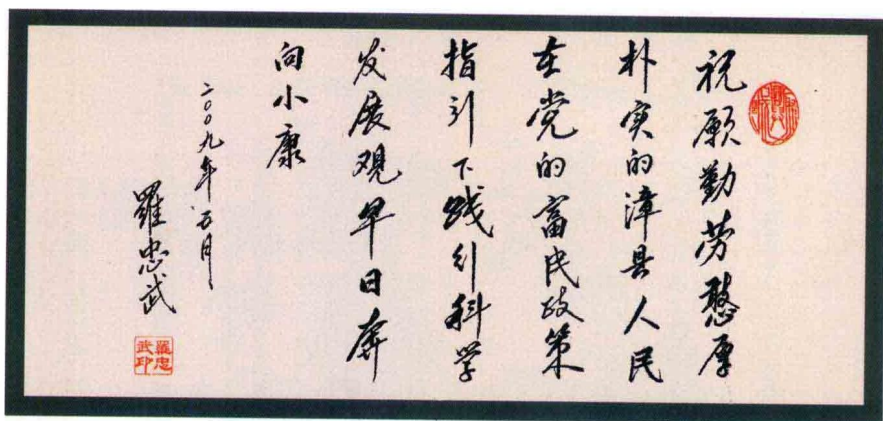 祝愿勤劳憨厚
朴实的漳县人民
在党的富民政策
指引下践行科学
发展观早日奔
向小康
二〇〇九年五月
羅忠武
羅忠武印